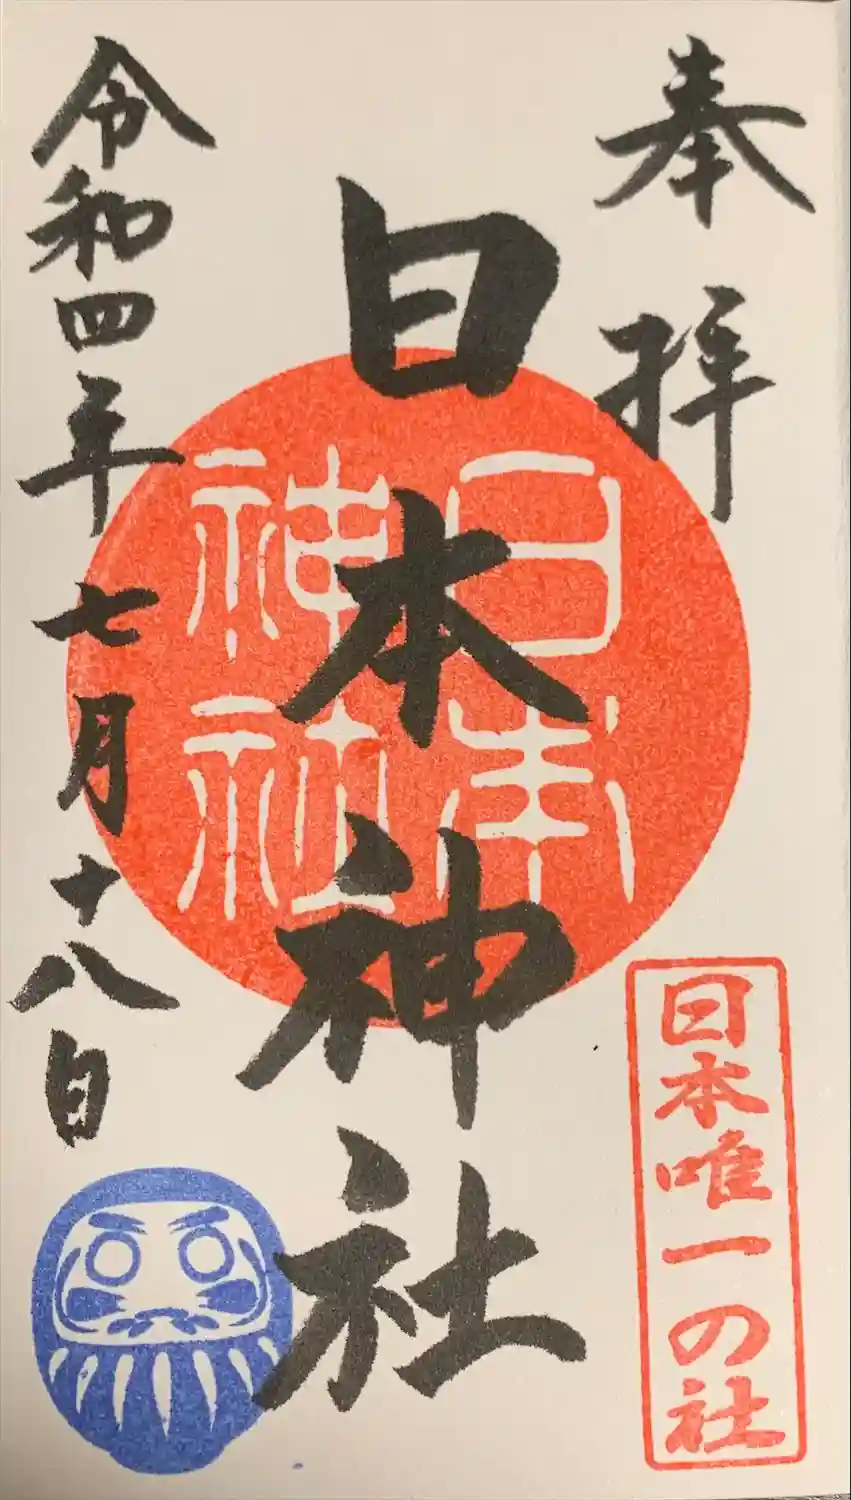 奉拝
日本唯一の社
日本神社
日本
神社
令和四年七月十八日